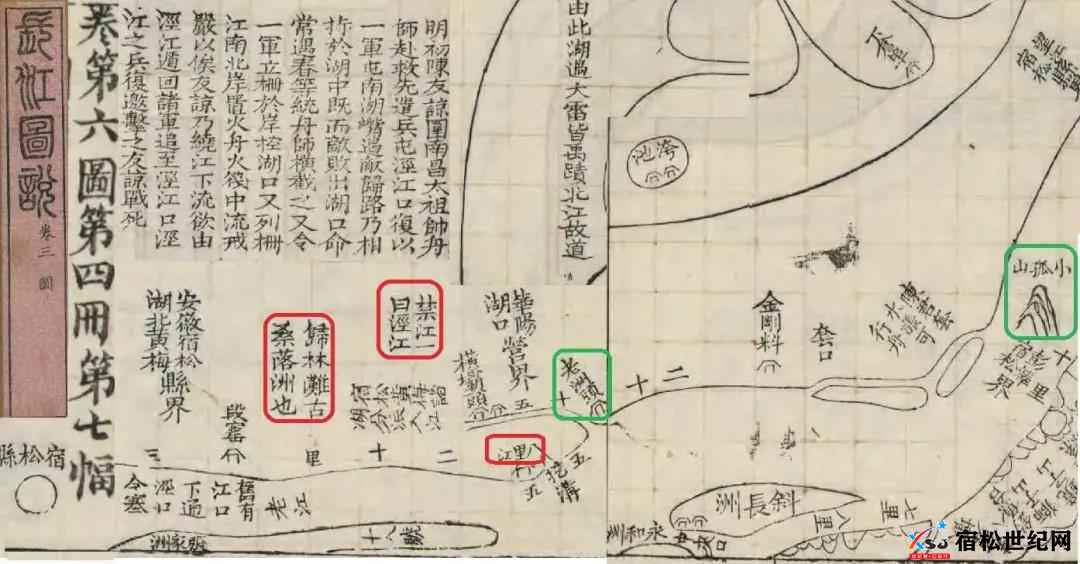 長江圖說
卷三 圖
卷第六圖第四冊第七幅
明初陳友諒圍南昌太祖帥舟
師赴救先遣兵屯涇江口復以
一軍屯南湖嘴遏敵歸路乃相
拒於湖中既而敵敗出湖口命
常遇春等統舟師橫截之又令
一軍立柵於岸控湖口又列柵
江南北岸置火舟火筏中流戒
嚴以俟友諒乃繞江下流欲由
涇江遁回諸軍追至涇江口涇
江之兵復邀擊之友諒戰死
由此湖過大雷皆禹蹟北江故道
望江縣界
宿松
小孤山
金剛料
套口
十二
老洲頭
十
華陽營界
湖口
五
禁江一
曰涇江
歸林灘古
桑落洲也
安徽宿松縣界
湖北黃梅
段窰
三
里
十
二
八里江
五
挖溝
五
舊有
江口
下通
涇口
今塞
老江
宿松縣
張家洲
八十號
斜長洲
永和洲
八里
十里
宿松世纪网